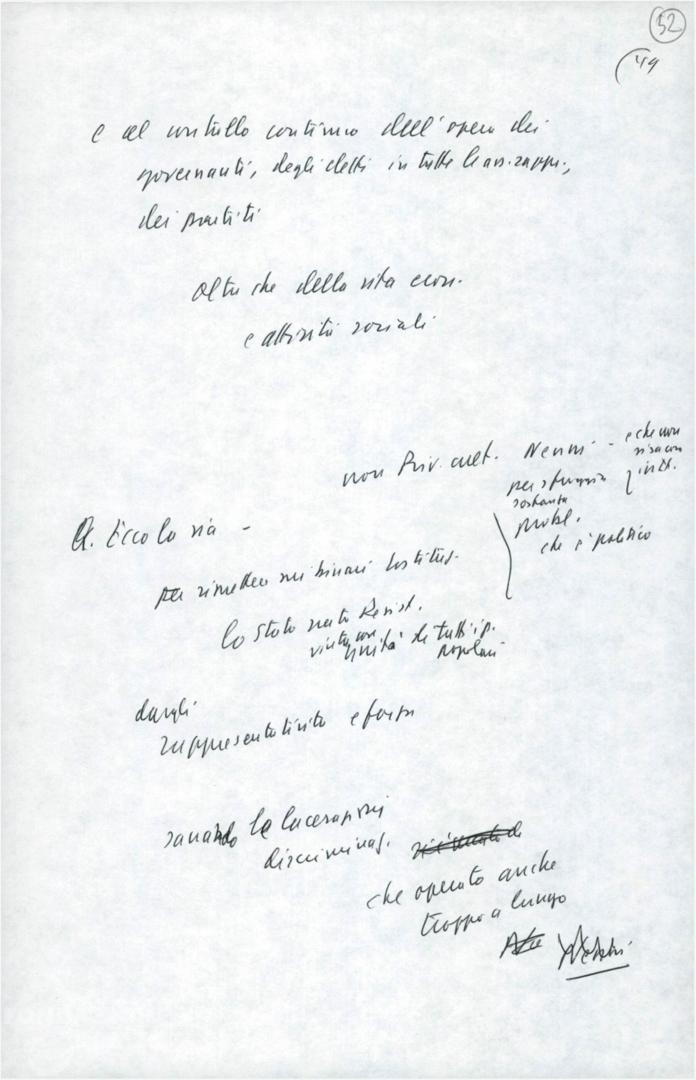 52
49
e al controllo continuo dell'opera dei
governanti, degli eletti in tutte le ass. rappr.,
dei partiti
oltre che della vita econ.
e attività sociali
non Nenni - e che non
per
sostanza
probl.
che è politico
Ecco la via -
per rimettere sui binari Costituz.
lo Stato nato Resist.
vinta con
Unità di tutti i p.
popolari
dargli
rappresentatività e forza
sanando le lacerazioni
discriminaz.
che operato anche
troppo a lungo